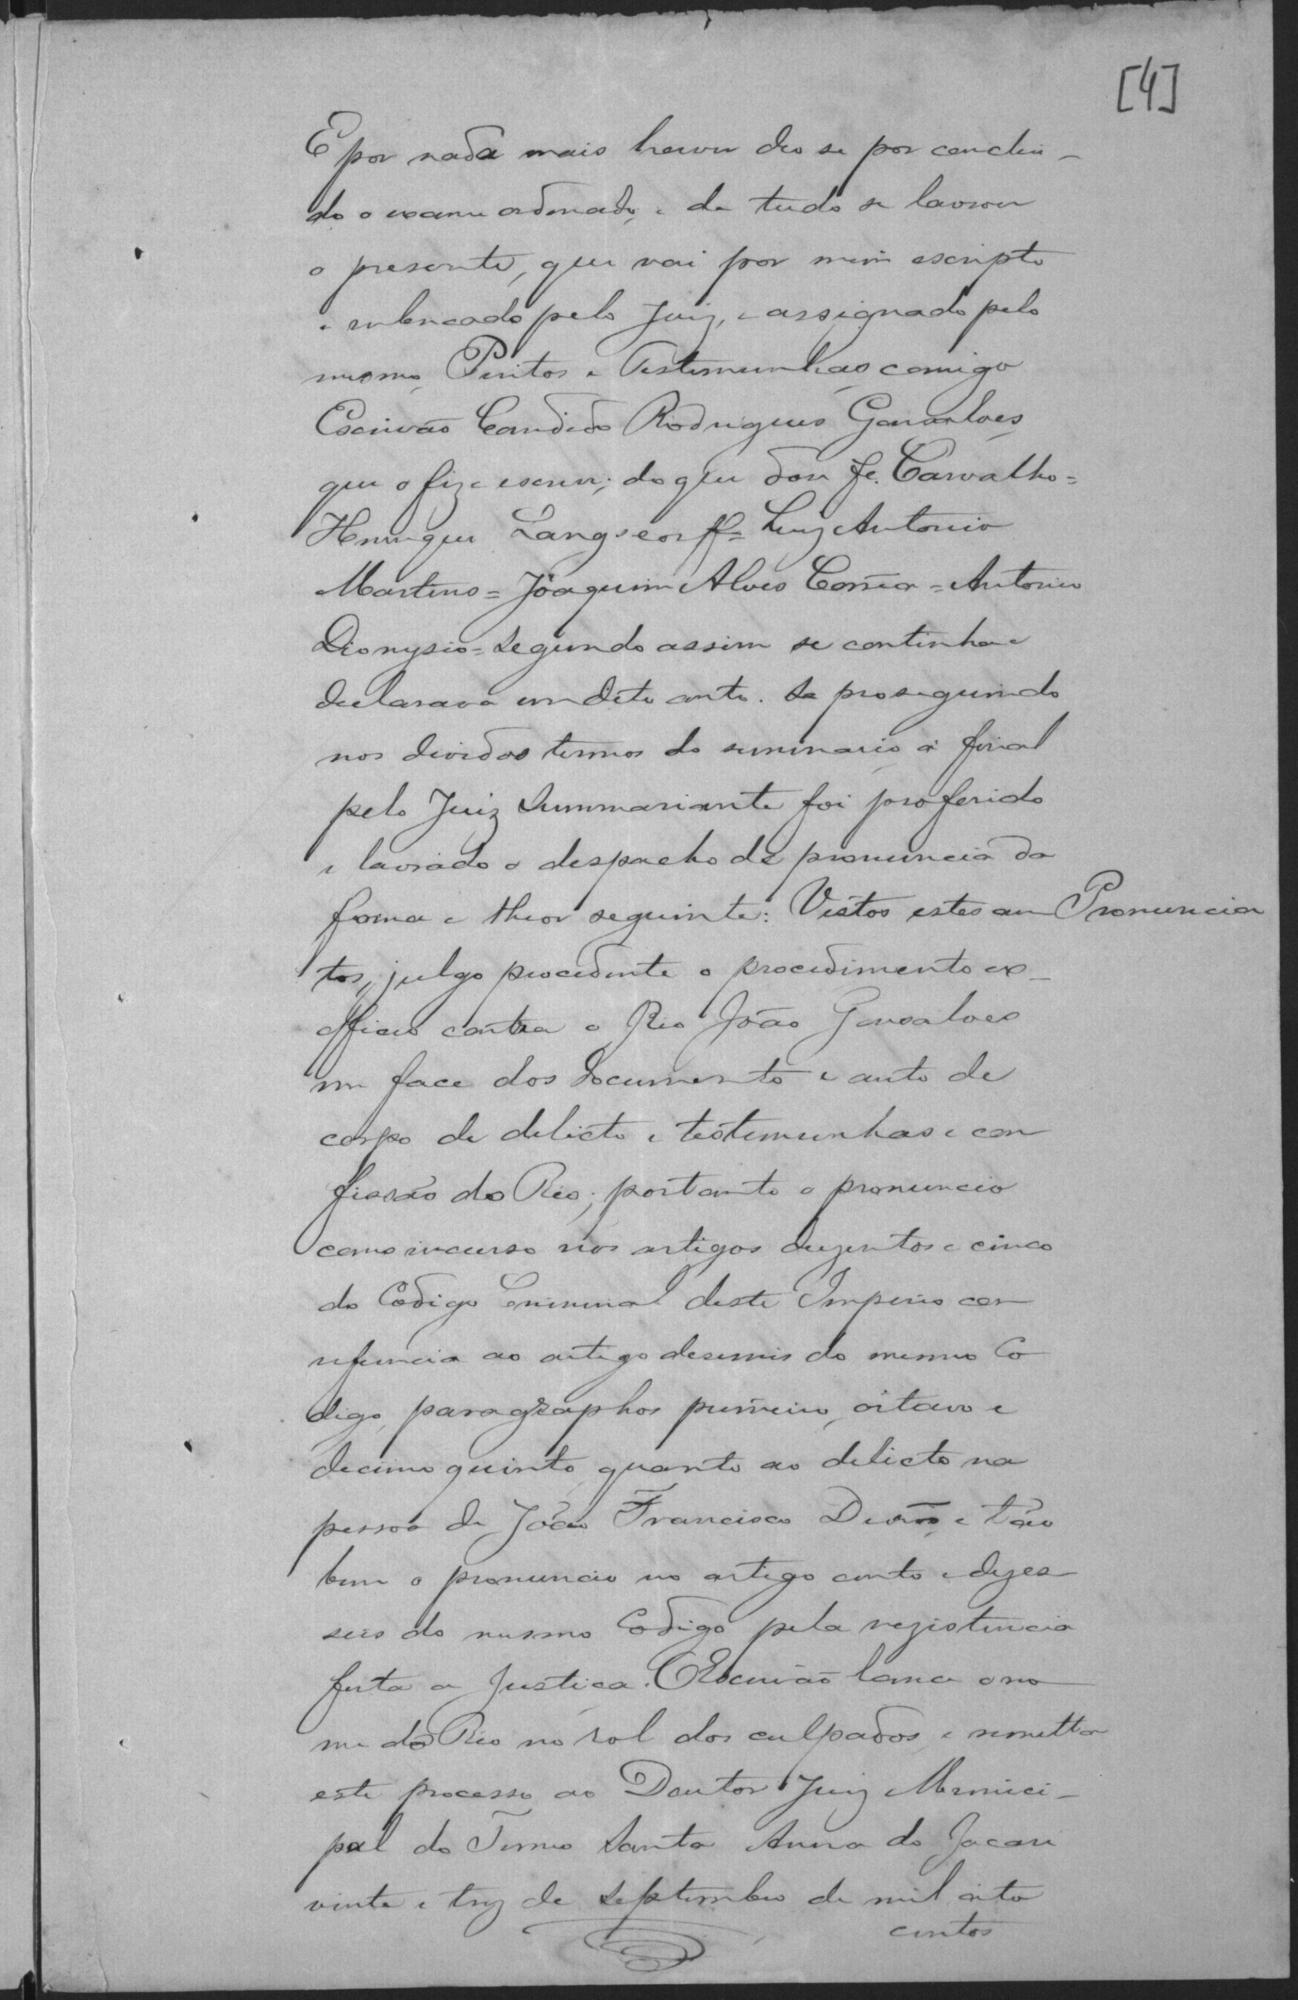 [4]
E por nada mais haver deo se por conclui-
do o exame ordenado, e de tudo se lavrou
o presente, que vai por mim escripto
e rubricado pelo Juiz, e assignado pelo
mesmo, Peritos e Testemunhas, comigo
Escrivão Candido Rodrigues Gonsalves,
que o fiz e escrevi; do que dou fé. Carvalho=
Henrique Langsdorff= Luiz Antonio
Martins= Joaquim Alves Corrêa= Antonio
Dionysio= Segundo assim se continha e
declarava em dito auto. Se proseguindo
nos devidos termos do summario, a final
pelo Juiz Summariante foi proferido
e lavrado o despacho de pronuncia da
forma e theor seguinte: Vistos estes au
Pronuncia
tos, julgo procedente o procedimento ex-
officio contra o Reo João Gonsalves
em face dos documento e auto de
corpo de delicto e testemunhas e con
fissão do Reo; portanto o pronuncio
como incurso nos artigos duzentos e cinco
do Codigo Criminal deste Imperio com
referencia ao artigo deseseis do mesmo Co
digo, paragraphos primeiro, oitavo e
decimo quinto, quanto ao delicto na
pessoa de João Francisco e tão
bem o pronuncio no artigo cento e dezes
seis do mesmo Codigo pela rezistencia
feita a Justiça. O Escrivão lance o no
me do Reo no rol dos culpados, e remetta
este processo ao Doutor Juiz Munici-
pal do Termo Santa Anna do Jacaré
vinte e trez de Septembro de mil oito
centos